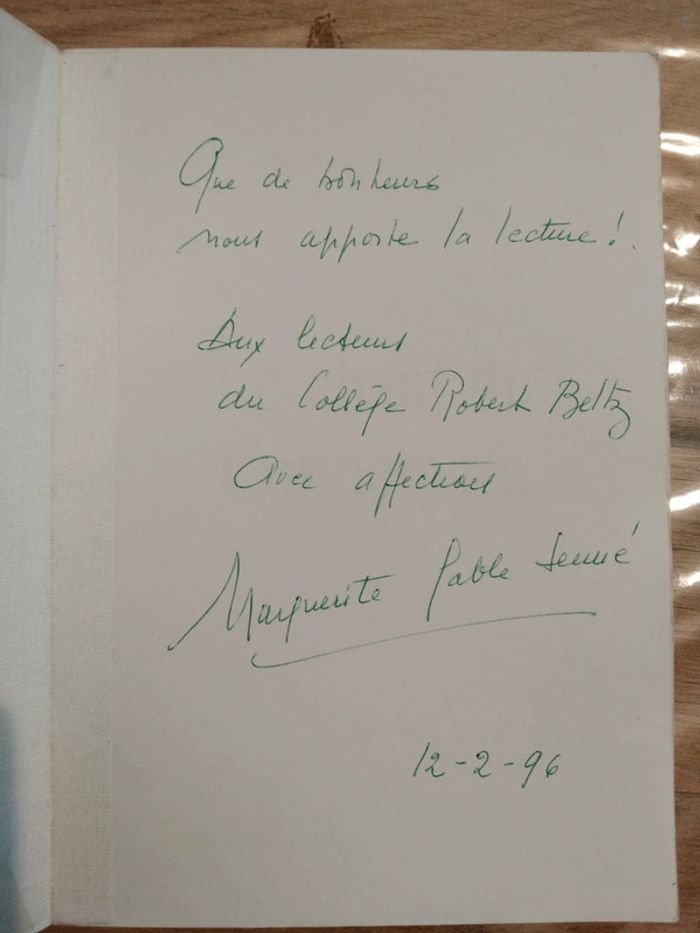 Que de bonheurs
nous apporte la lecture !
Aux lecteurs
du Collège Robert Beltz
Avec affection
Marguerite Gable Senné
12-2-96